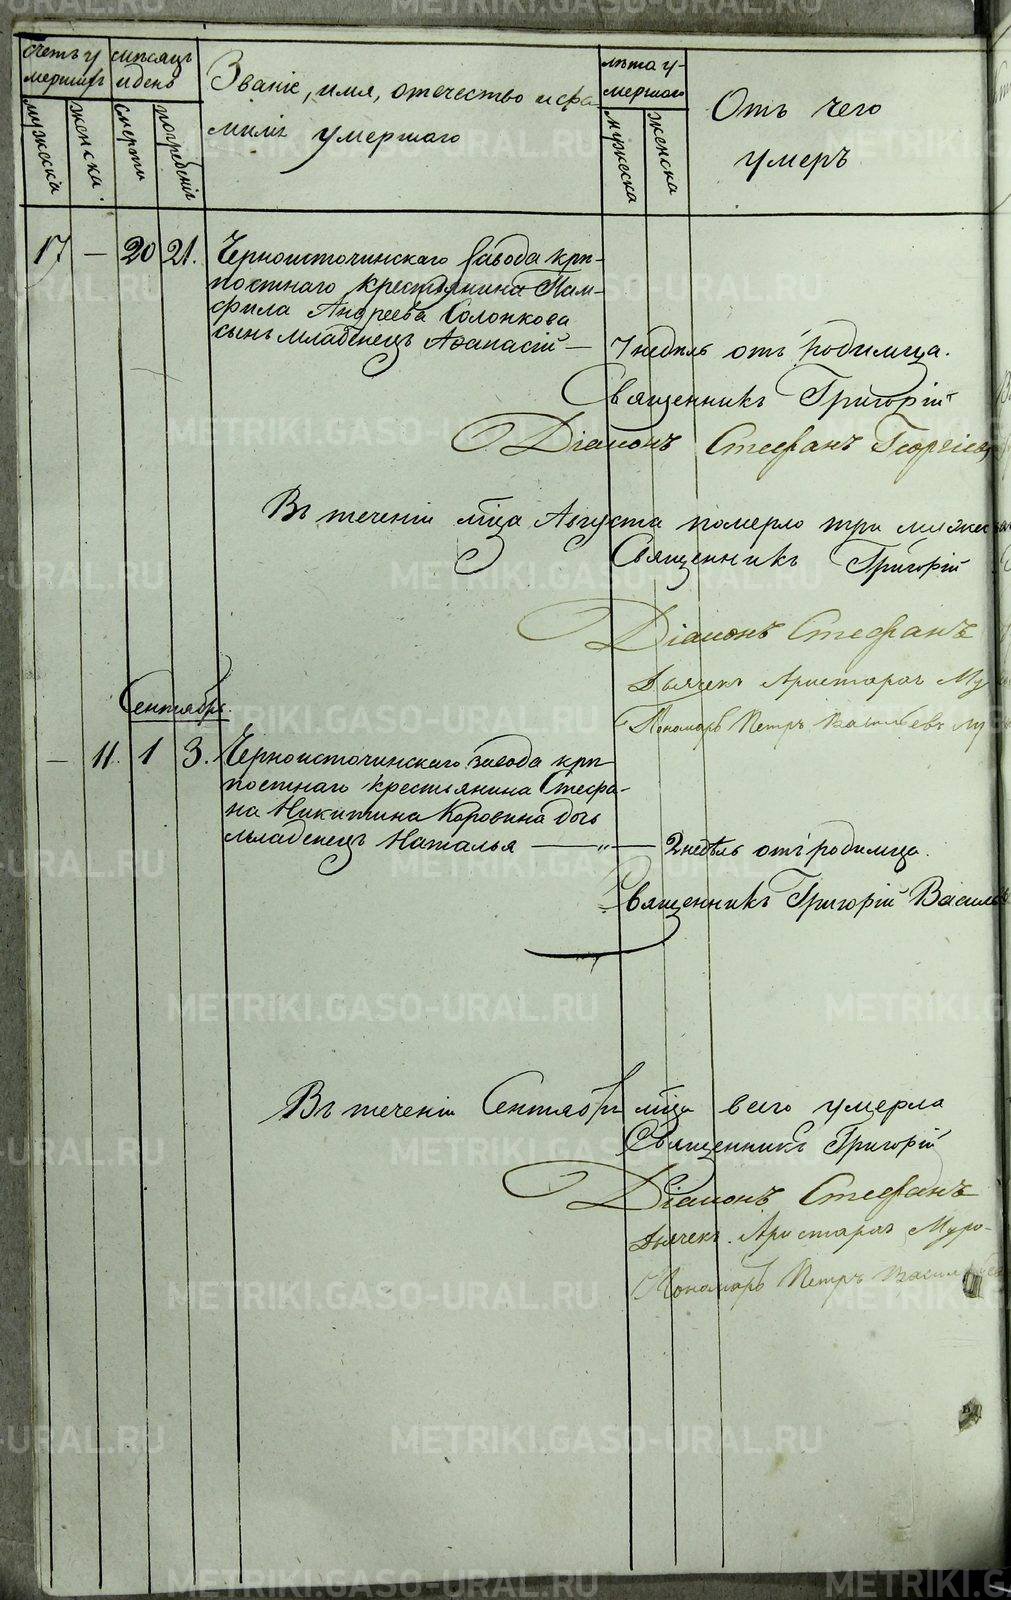 счетъ у
мершихъ
мужеска
женска.
мѣсяцъ
и день
смерти
погребенія
Званіе, имя, отечество и фа-
миліе умершаго
лѣта у-
мершаго
мужеска
женска
Отъ чего
умеръ
17 — 20 21. Черноисточинскаго завода крѣ-
постнаго крестьянина Пам-
фила Андреева Солонкова
сынъ младенецъ Аѳанасій — 7 недѣль отъ родимца.
Священникъ Григорій
Діаконъ Стефанъ Георгіев
Въ теченіи мѣца Августа померло три мужеска
Священникъ Григорій
Діаконъ Стефанъ
Дьячекъ Аристархъ Му
Пономарь Петръ Васильевъ Му
Сентябрь.
— 11. 1 3. Черноисточинскаго завода крѣ-
постнаго крестьянина Стефа-
на Никитина Коровина дочь
младенецъ Наталья — „ — 2 недѣль отъ родимца.
Священникъ Григорій Василь
Въ теченіи Сентябрѣ мѣца всего умерла
Священникъ Григорій
Діаконъ Стефанъ
Дьячекъ Аристархъ Муро-
Пономарь Петръ Василь
METRIKI.GASO-URAL.RU